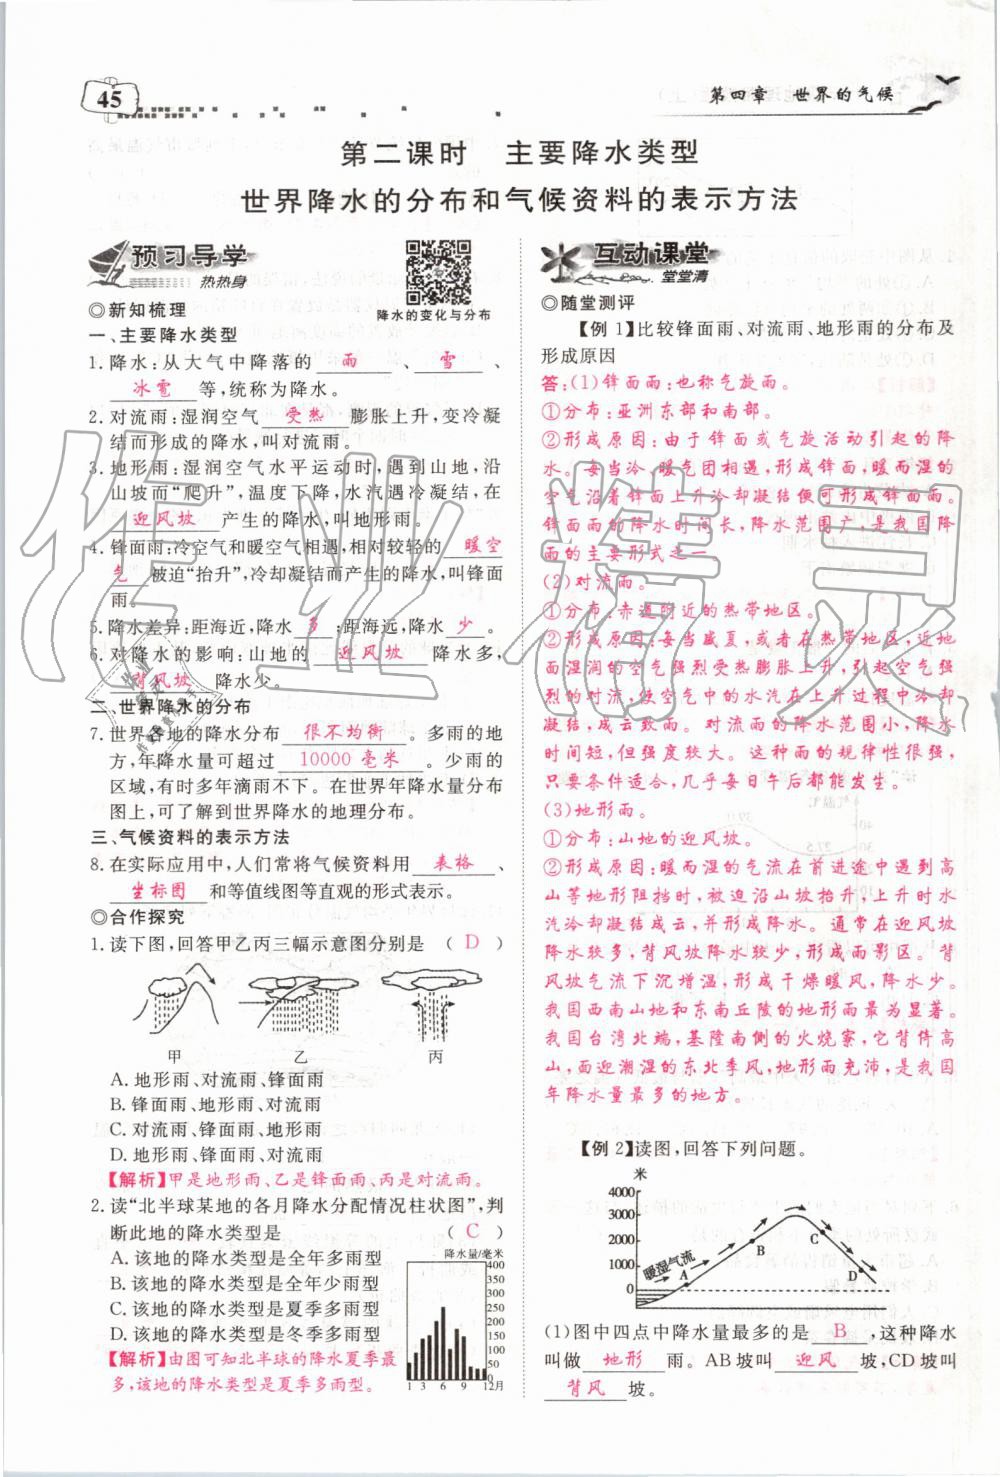 45
第四章 世界的气候
第二课时 主要降水类型
世界降水的分布和气候资料的表示方法
预习导学
热热身
降水的变化与分布
◎新知梳理
一、主要降水类型
1. 降水:从大气中降落的 雨 、 雪 、
冰雹 等,统称为降水。
2. 对流雨:湿润空气 受热 膨胀上升,变冷凝
结而形成的降水,叫对流雨。
3. 地形雨:湿润空气水平运动时,遇到山地,沿
山坡而“爬升”,温度下降,水汽遇冷凝结,在
迎风坡 产生的降水,叫地形雨。
4. 锋面雨:冷空气和暖空气相遇,相对较轻的 暖空
气 被迫“抬升”,冷却凝结而产生的降水,叫锋面
雨。
5. 降水差异:距海近,降水 多 ;距海远,降水 少 。
6. 对降水的影响:山地的 迎风坡 降水多,
背风坡 降水少。
二、世界降水的分布
7. 世界各地的降水分布 很不均衡 。多雨的地
方,年降水量可超过 10000 毫米 。少雨的
区域,有时多年滴雨不下。在世界年降水量分布
图上,可了解到世界降水的地理分布。
三、气候资料的表示方法
8. 在实际应用中,人们常将气候资料用 表格 、
坐标图 和等值线图等直观的形式表示。
◎合作探究
1. 读下图,回答甲乙丙三幅示意图分别是 ( D )
甲 乙 丙
A. 地形雨、对流雨、锋面雨
B. 锋面雨、地形雨、对流雨
C. 对流雨、锋面雨、地形雨
D. 地形雨、锋面雨、对流雨
【解析】甲是地形雨、乙是锋面雨、丙是对流雨。
2. 读“北半球某地的各月降水分配情况柱状图”,判
断此地的降水类型是 ( C )
A. 该地的降水类型是全年多雨型
B. 该地的降水类型是全年少雨型
C. 该地的降水类型是夏季多雨型
D. 该地的降水类型是冬季多雨型
【解析】由图可知北半球的降水夏季最
多,该地的降水类型是夏季多雨型。
降水量/毫米
400
350
300
250
200
150
100
50
0
1 3 6 9 12月
互动课堂
堂堂清
◎随堂测评
【例 1】比较锋面雨、对流雨、地形雨的分布及
形成原因
答:(1)锋面雨:也称气旋雨。
①分布:亚洲东部和南部。
②形成原因:由于锋面或气旋活动引起的降
水。每当冷、暖气团相遇,形成锋面,暖而湿的
空气沿着锋面上升冷却凝结便可形成锋面雨。
锋面雨的降水时间长,降水范围广,是我国降
雨的主要形式之一
(2)对流雨。
①分布:赤道附近的热带地区。
②形成原因:每当盛夏,或在热带地区,近地
面湿润的空气强烈受热膨胀上升,引起空气强
烈的对流,使空气中的水汽在上升过程中冷却
凝结,成云致雨。对流雨的降水范围小,降水
时间短,但强度较大。这种雨的规律性很强,
只要条件适合,几乎每日午后都能发生。
(3)地形雨。
①分布:山地的迎风坡。
②形成原因:暖而湿的气流在前进途中遇到高
山等地形阻挡时,被迫沿山坡抬升,上升时水
汽冷却凝结成云,并形成降水。通常在迎风坡
降水较多,背风坡降水较少,形成雨影区。背
风坡气流下沉增温,形成干燥暖风,降水少。
我国西南山地和东南丘陵的地形雨最为显著。
我国台湾北端,基隆南侧的火烧寮,它背停高
山,面迎潮湿的东北季风,地形雨充沛,是我国
年降水量最多的地方。
【例 2】读图,回答下列问题。
米
4000
3000
2000
1000
0
暖湿气流
A
B
C
D
(1)图中四点中降水量最多的是 B ,这种降水
叫做 地形 雨。AB坡叫 迎风 坡,CD坡叫
背风 坡。
作业精灵